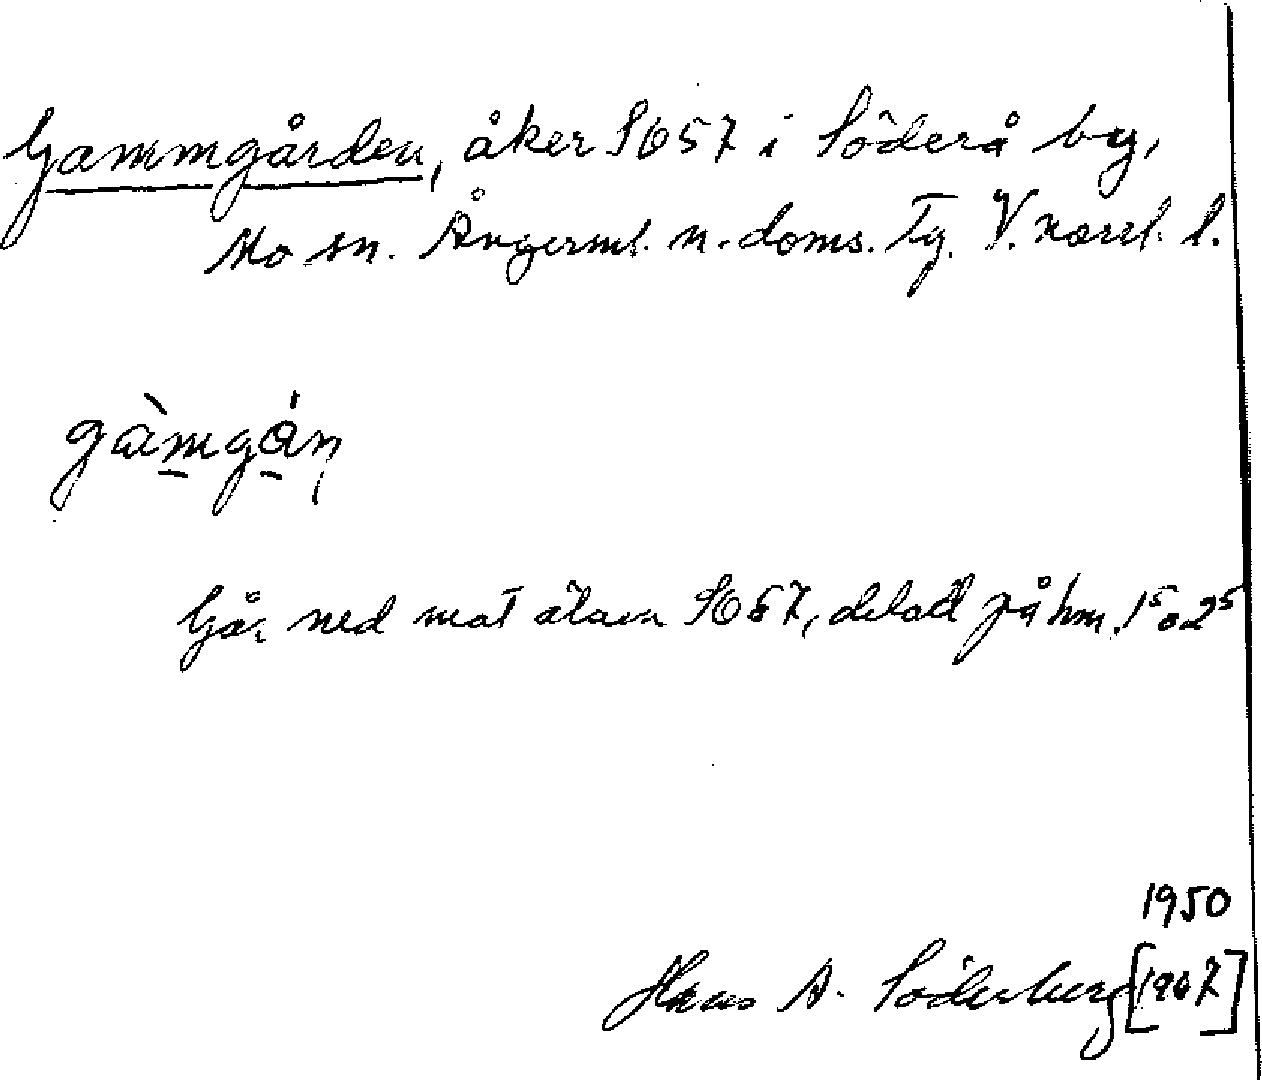 Gammgården, åker S657 i Söderå by,
Mo sn. Ångerml. n. doms. Tg. V. norrl. l.
gàmgán
Går ned mot älven S657, delad på hm. 1⁵ o 2⁵
1950
Hans A. Söderberg [1967]